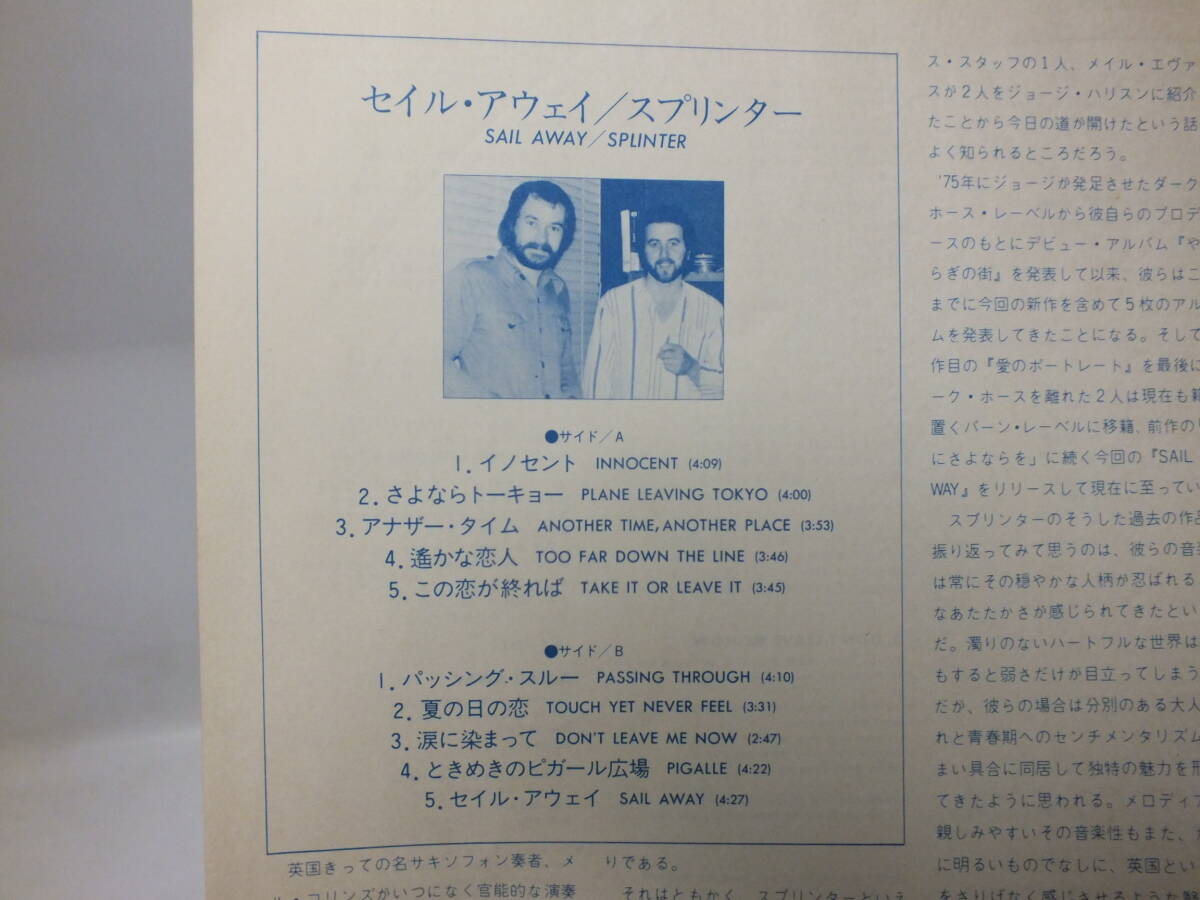 セイル・アウェイ/スプリンター
SAIL AWAY/SPLINTER
●サイド/A
1. イノセント INNOCENT (4:09)
2. さよならトーキョー PLANE LEAVING TOKYO (4:00)
3. アナザー・タイム ANOTHER TIME, ANOTHER PLACE (3:53)
4. 遙かな恋人 TOO FAR DOWN THE LINE (3:46)
5. この恋が終れば TAKE IT OR LEAVE IT (3:45)
●サイド/B
1. パッシング・スルー PASSING THROUGH (4:10)
2. 夏の日の恋 TOUCH YET NEVER FEEL (3:31)
3. 涙に染まって DON'T LEAVE ME NOW (2:47)
4. ときめきのピガール広場 PIGALLE (4:22)
5. セイル・アウェイ SAIL AWAY (4:27)
英国きっての名サキソフォン奏者、メ
ル・コリンズがいつになく官能的な演奏
りである。
それはともかく、スプリンターといえ
ス・スタッフの1人、メイル・エヴァ
スが2人をジョージ・ハリスンに紹介
たことから今日の道が開けたという話
よく知られるところだろう。
'75年にジョージが発足させたダーク
ホース・レーベルから彼自らのプロデ
ースのもとにデビュー・アルバム『や
らぎの街』を発表して以来、彼らはこ
までに今回の新作を含めて5枚のアル
ムを発表してきたことになる。そして
作目の『愛のポートレート』を最後に
ーク・ホースを離れた2人は現在も籍
置くバーン・レーベルに移籍、前作の
にさよならを」に続く今回の『SAIL
WAY』をリリースして現在に至ってい
スプリンターのそうした過去の作品
振り返ってみて思うのは、彼らの音楽
は常にその穏やかな人柄が忍ばれる
なあたたかさが感じられてきたとい
だ。濁りのないハートフルな世界は
もすると弱さだけが目立ってしまう
だが、彼らの場合は分別のある大人
れと青春期へのセンチメンタリズム
まい具合に同居して独特の魅力を形
てきたように思われる。メロディア
親しみやすいその音楽性もまた、
に明るいものでなしに、英国とい
をさりげなく感じさせるような